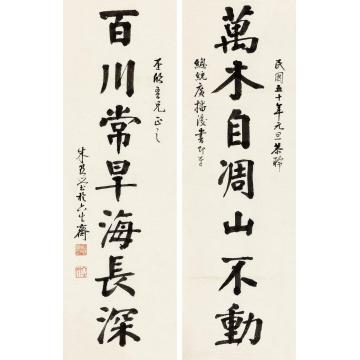 民國五十年元旦恭聆
萬木自凋山不動
總統廣播後書
吾兄正之
百川常旱海長深
朱玖瑩於六 齋